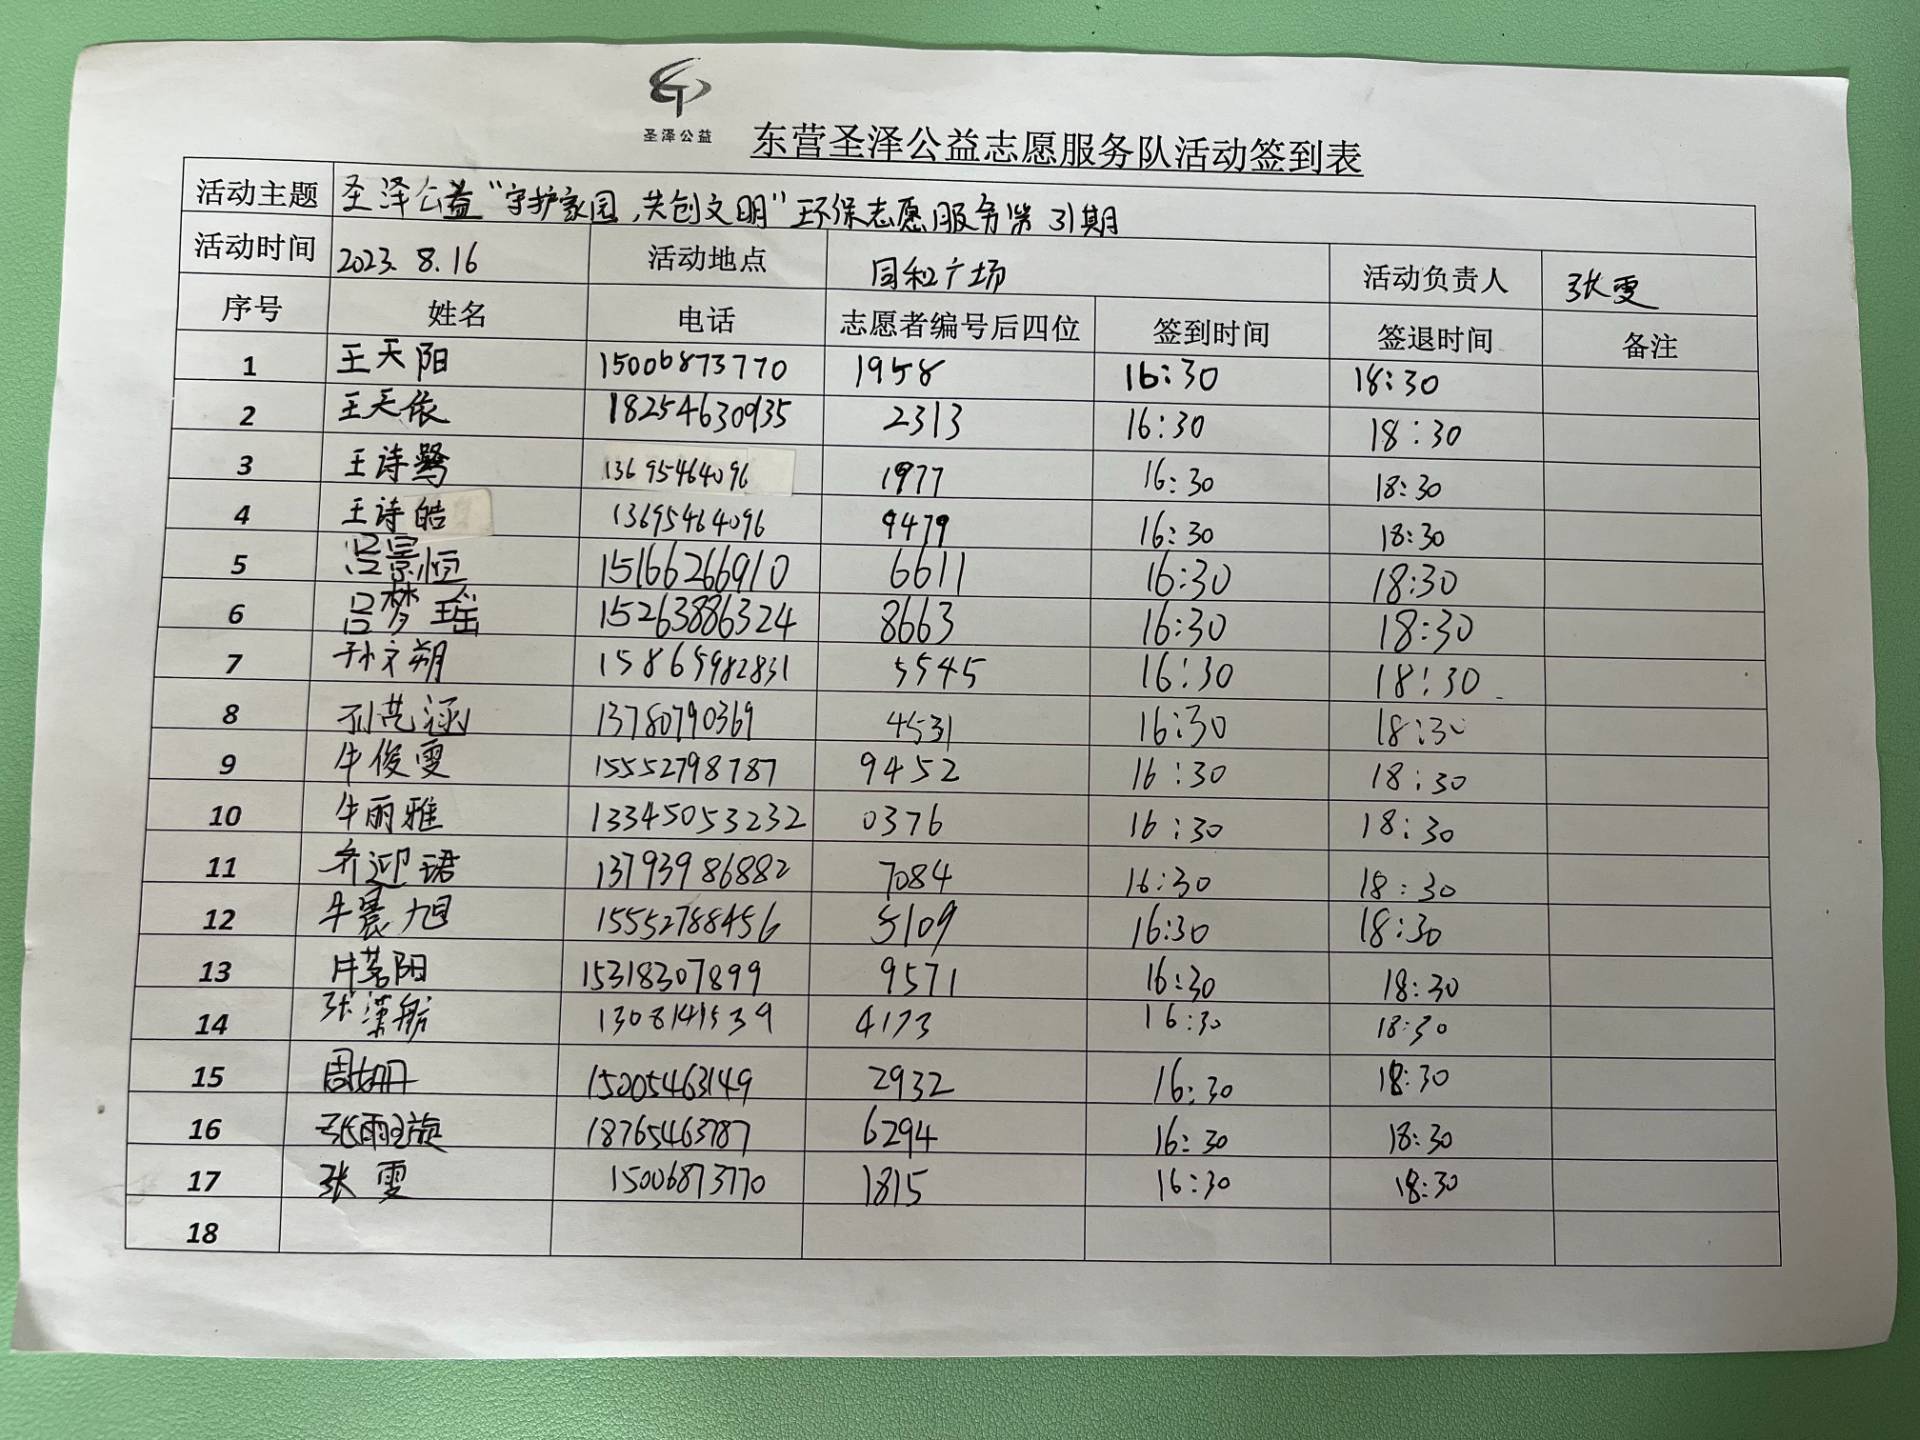 圣泽公益
东营圣泽公益志愿服务队活动签到表
活动主题 圣泽公益“守护家园,共创文明”环保志愿服务第31期
活动时间 2023.8.16 活动地点 同和广场 活动负责人 张雯
序号 姓名 电话 志愿者编号后四位 签到时间 签退时间 备注
1 王天阳 15006873770 1958 16:30 18:30
2 王天依 18254630935 2313 16:30 18:30
3 王诗鹭 13695464096 1977 16:30 18:30
4 王诗皓 13695464096 9479 16:30 18:30
5 吕景恒 15166266910 6611 16:30 18:30
6 吕梦瑶 15263886324 8663 16:30 18:30
7 孙文朔 15865982831 5545 16:30 18:30
8 孙艺涵 13780790369 4531 16:30 18:30
9 牛俊雯 15552798787 9452 16:30 18:30
10 牛丽雅 13345053232 0376 16:30 18:30
11 齐迎珺 13793986882 7084 16:30 18:30
12 牛晨旭 15552788456 5109 16:30 18:30
13 牛茗阳 15318307899 9571 16:30 18:30
14 张潇航 4173 16:30 18:30
15 周如册 15005463149 2932 16:30 18:30
16 张雨旋 18765463787 6294 16:30 18:30
17 张雯 15006873770 1815 16:30 18:30
18